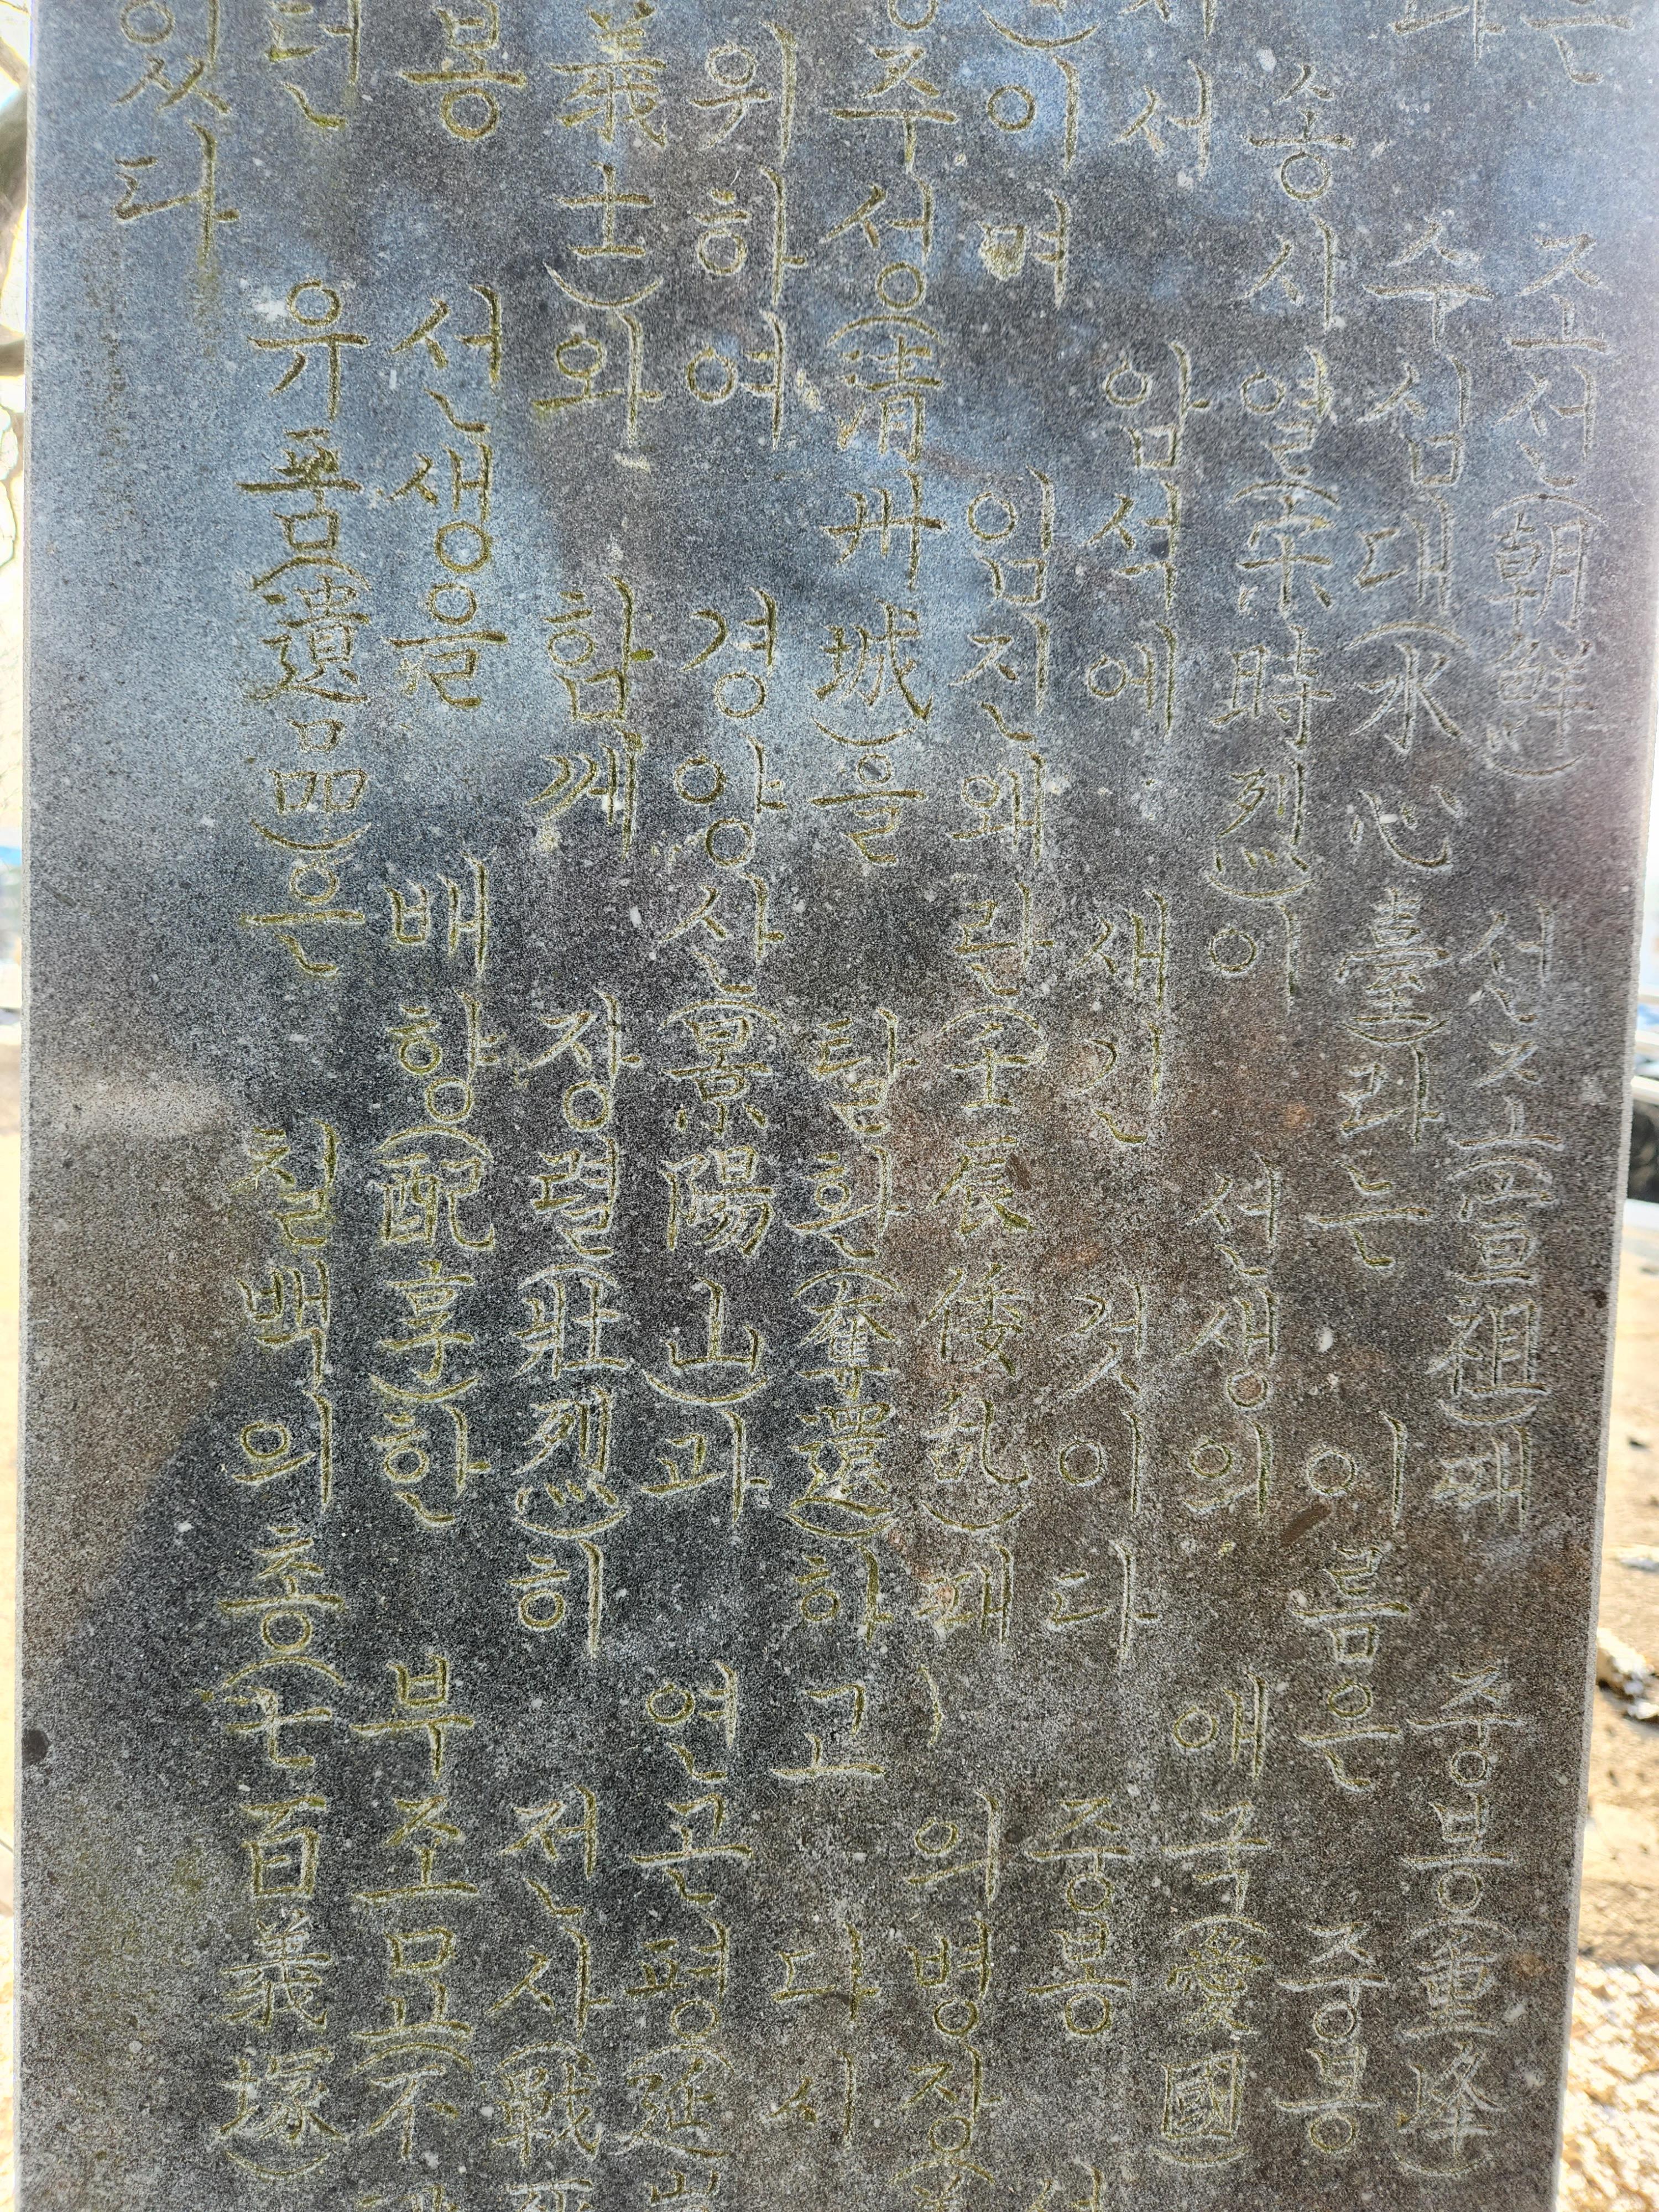 은 조선(朝鮮) 선조(宣祖)때 중봉(重峰)
라 수심대(水心臺)라는 이름은 중봉
송시열(宋時烈)이 선생의 애국(愛國)
서 암석에 새긴 것이다 중봉
)이며 임진왜란(壬辰倭乱)때 의병장(
주성(淸州城)을 탈환(奪還)하고 다시
위하여 경양산(景陽山)과 연곤평(延
義士)와 함께 장렬(壯烈)히 전사(戰死
봉 선생을 배향(配享)한 부조묘(不
던 유품(遺品)은 칠백의총(七百義塚)
있다